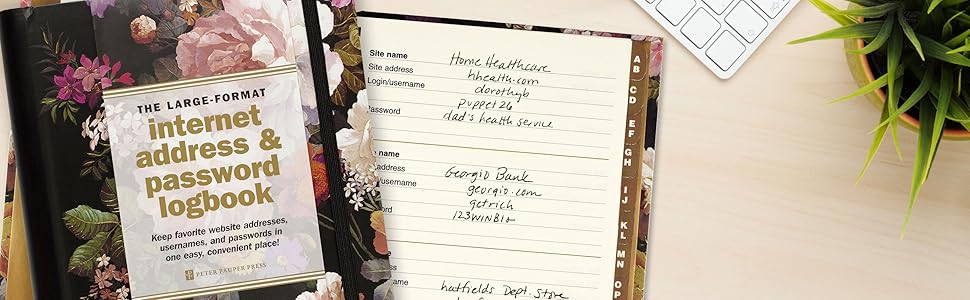 THE LARGE-FORMAT
internet
address &
password
logbook
Keep favorite website addresses,
usernames, and passwords in
one easy, convenient place!
PETER PAUPER PRESS
Site name Home Healthcare
Site address hhealth.com
Login/username dorothyb
Password puppet26
dad's health service
name Georgio Bank
address georgio.com
/username getrich
123WINBIG
hatfields Dept. Store
A B
C D
E F
G H
I J
K L
M N
O P